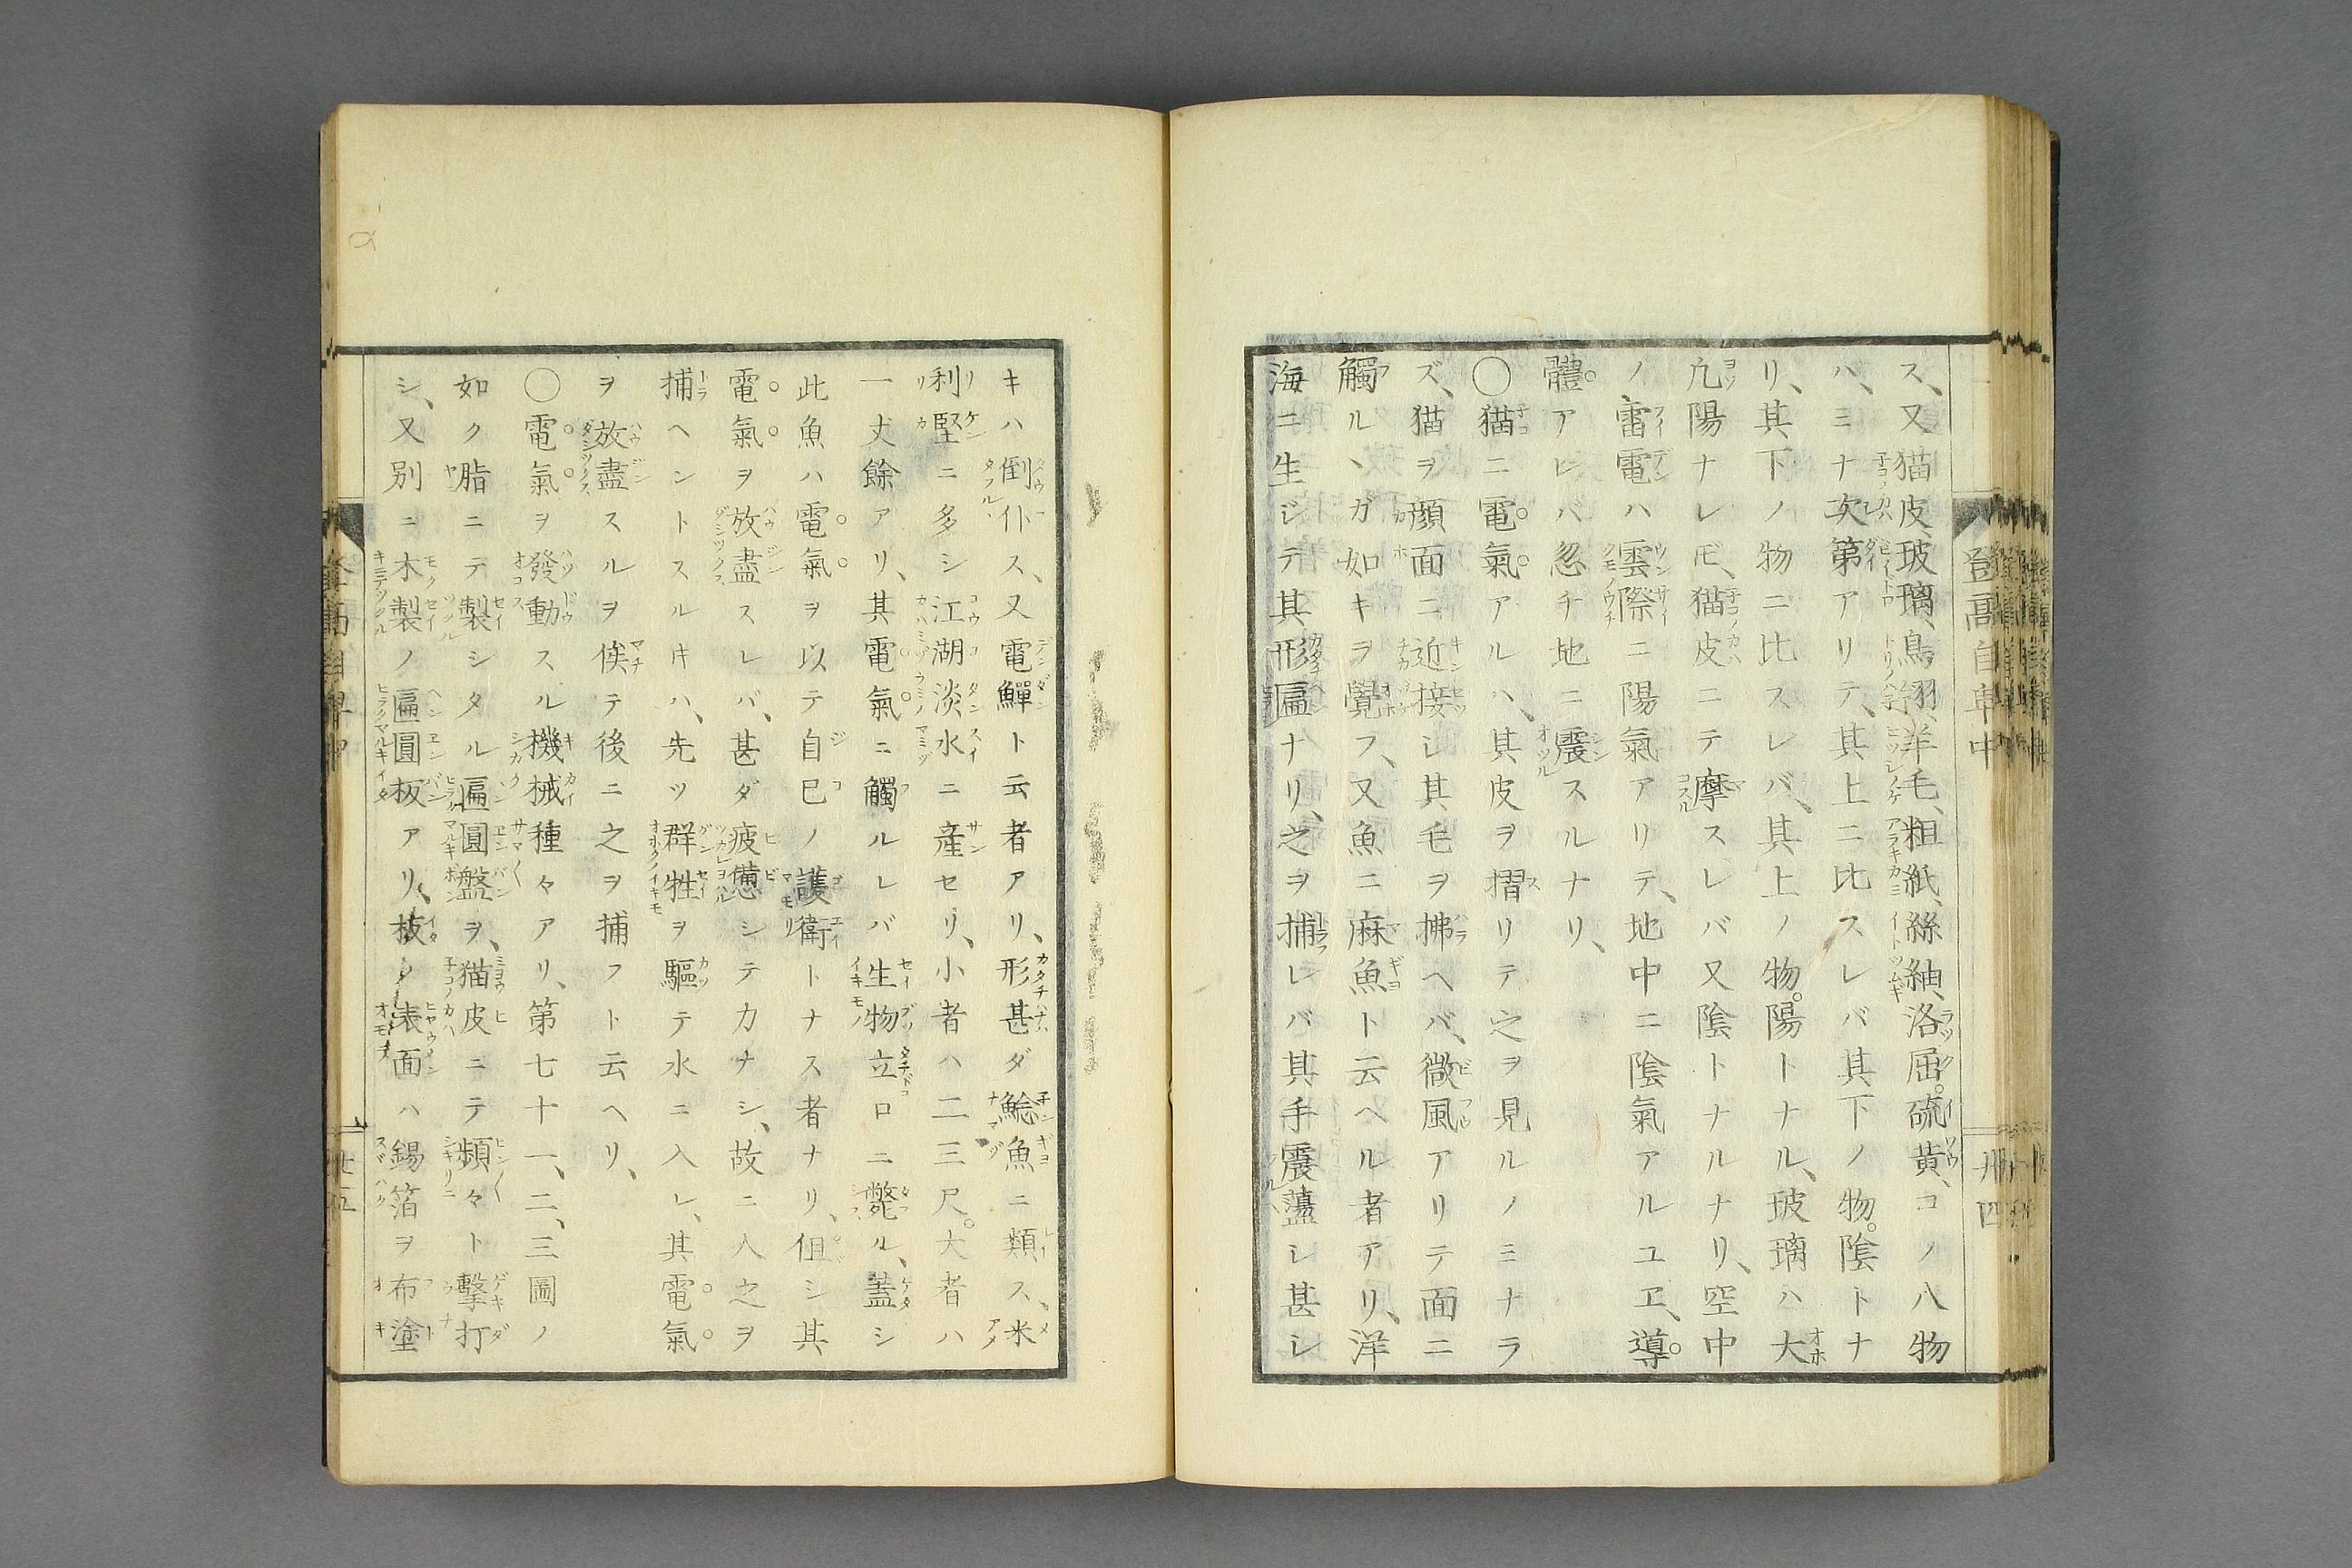 ス、又猫皮、玻璃、鳥翎、羊毛、粗紙、絲紬、洛屈。硫黄、コノ八物
ハ、ミナ次第アリテ、其上ニ比スレバ其下ノ物。陰トナ
リ、其下ノ物ニ比スレバ、其上ノ物。陽トナル、玻璃ハ大
凢陽ナレドモ、猫皮ニテ摩スレバ又陰トナルナリ、空中
ノ雷電ハ雲際ニ陽氣アリテ、地中ニ陰氣アルユヱ、導
體アレバ忽チ地ニ震スルナリ、
〇猫ニ電氣アルハ、其皮ヲ摺リテ之ヲ見ルノミナラ
ズ、猫ヲ顔面ニ近接シ其毛ヲ拂ヘバ、微風アリテ面ニ
觸ルヽガ如キヲ覺フ、又魚ニ麻魚ト云ヘル者アリ、洋
海ニ生ジテ其形匾ナリ、之ヲ捕レバ其手震蘯シ甚シ
登高自卑中
卅四
キハ倒仆ス、又電鱓ト云者アリ、形甚ダ鯰魚ニ類ス、米
利堅ニ多シ江湖淡水ニ産セリ、小者ハ二三尺。大者ハ
一丈餘アリ、其電氣ニ觸ルレバ生物立ロニ斃ル、蓋シ
此魚ハ電氣ヲ以テ自已ノ護衛トナス者ナリ、但シ其
電氣ヲ放盡スレバ、甚ダ疲憊シテ力ナシ、故ニ人之ヲ
捕ヘントスルトキハ、先ツ群牲ヲ驅テ水ニ入レ、其電氣
ヲ放盡スルヲ俟テ後ニ之ヲ捕フト云ヘリ、
〇電氣ヲ發動スル機械種々アリ、第七十一、二、三圖ノ
如ク脂ニテ製シタル匾圓盤ヲ、猫皮ニテ頻々ト擊打
シ、又別ニ木製ノ匾圓板アリ、板ノ表面ハ錫箔ヲ布塗